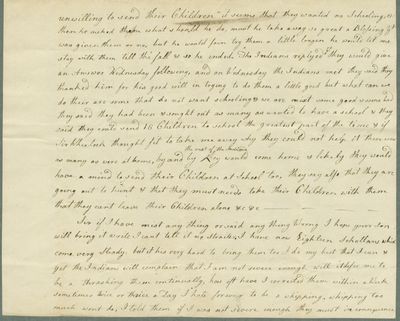 unwilling to send their Children it seems that they wanted no Schooling,
then he asked them what should he do, must he take away so great a Blessing
was given them or no, but he would fain try them a little longer he would let me
stay with them till this fall & so he ended. The Indians replyed they would give
an Answer Wednesday following, and on Wednesday the Indians met they said they
thanked him for his good will in trying to do them a little good but what can we
do their are some that do not want schooling & we are most some good some bad
they said they had been & sought out as many as wanted to have a school & they
said they could send 18 Children to school the greatest part of the time & if
Sir Wheelock thought fit to take me away why they could not help it there was
the rest of the Indians
as many as were at home, by and by they would come home & likely they would
have a mind to send their Children at School too, they say also that they are
going out to hunt & that they must needs take their Children with them
that they cant leave their Children alone &c &c
Sir if I have meat any thing or said any thing Wrong I hope your Son
will bring it write I cant tell it up straiter, I have now Eighteen Schollars which
come very Steady, but it his very hard to bring them too I do my best that I can &
yet the Indians will complain that I am not severe enough will
be a thrashing them continually, how oft have I corrected them within a week
sometimes twice or thrice a Day I hate forever to be a whipping, whipping too
much wont do, I told them if I was not severe enough they must in consequence